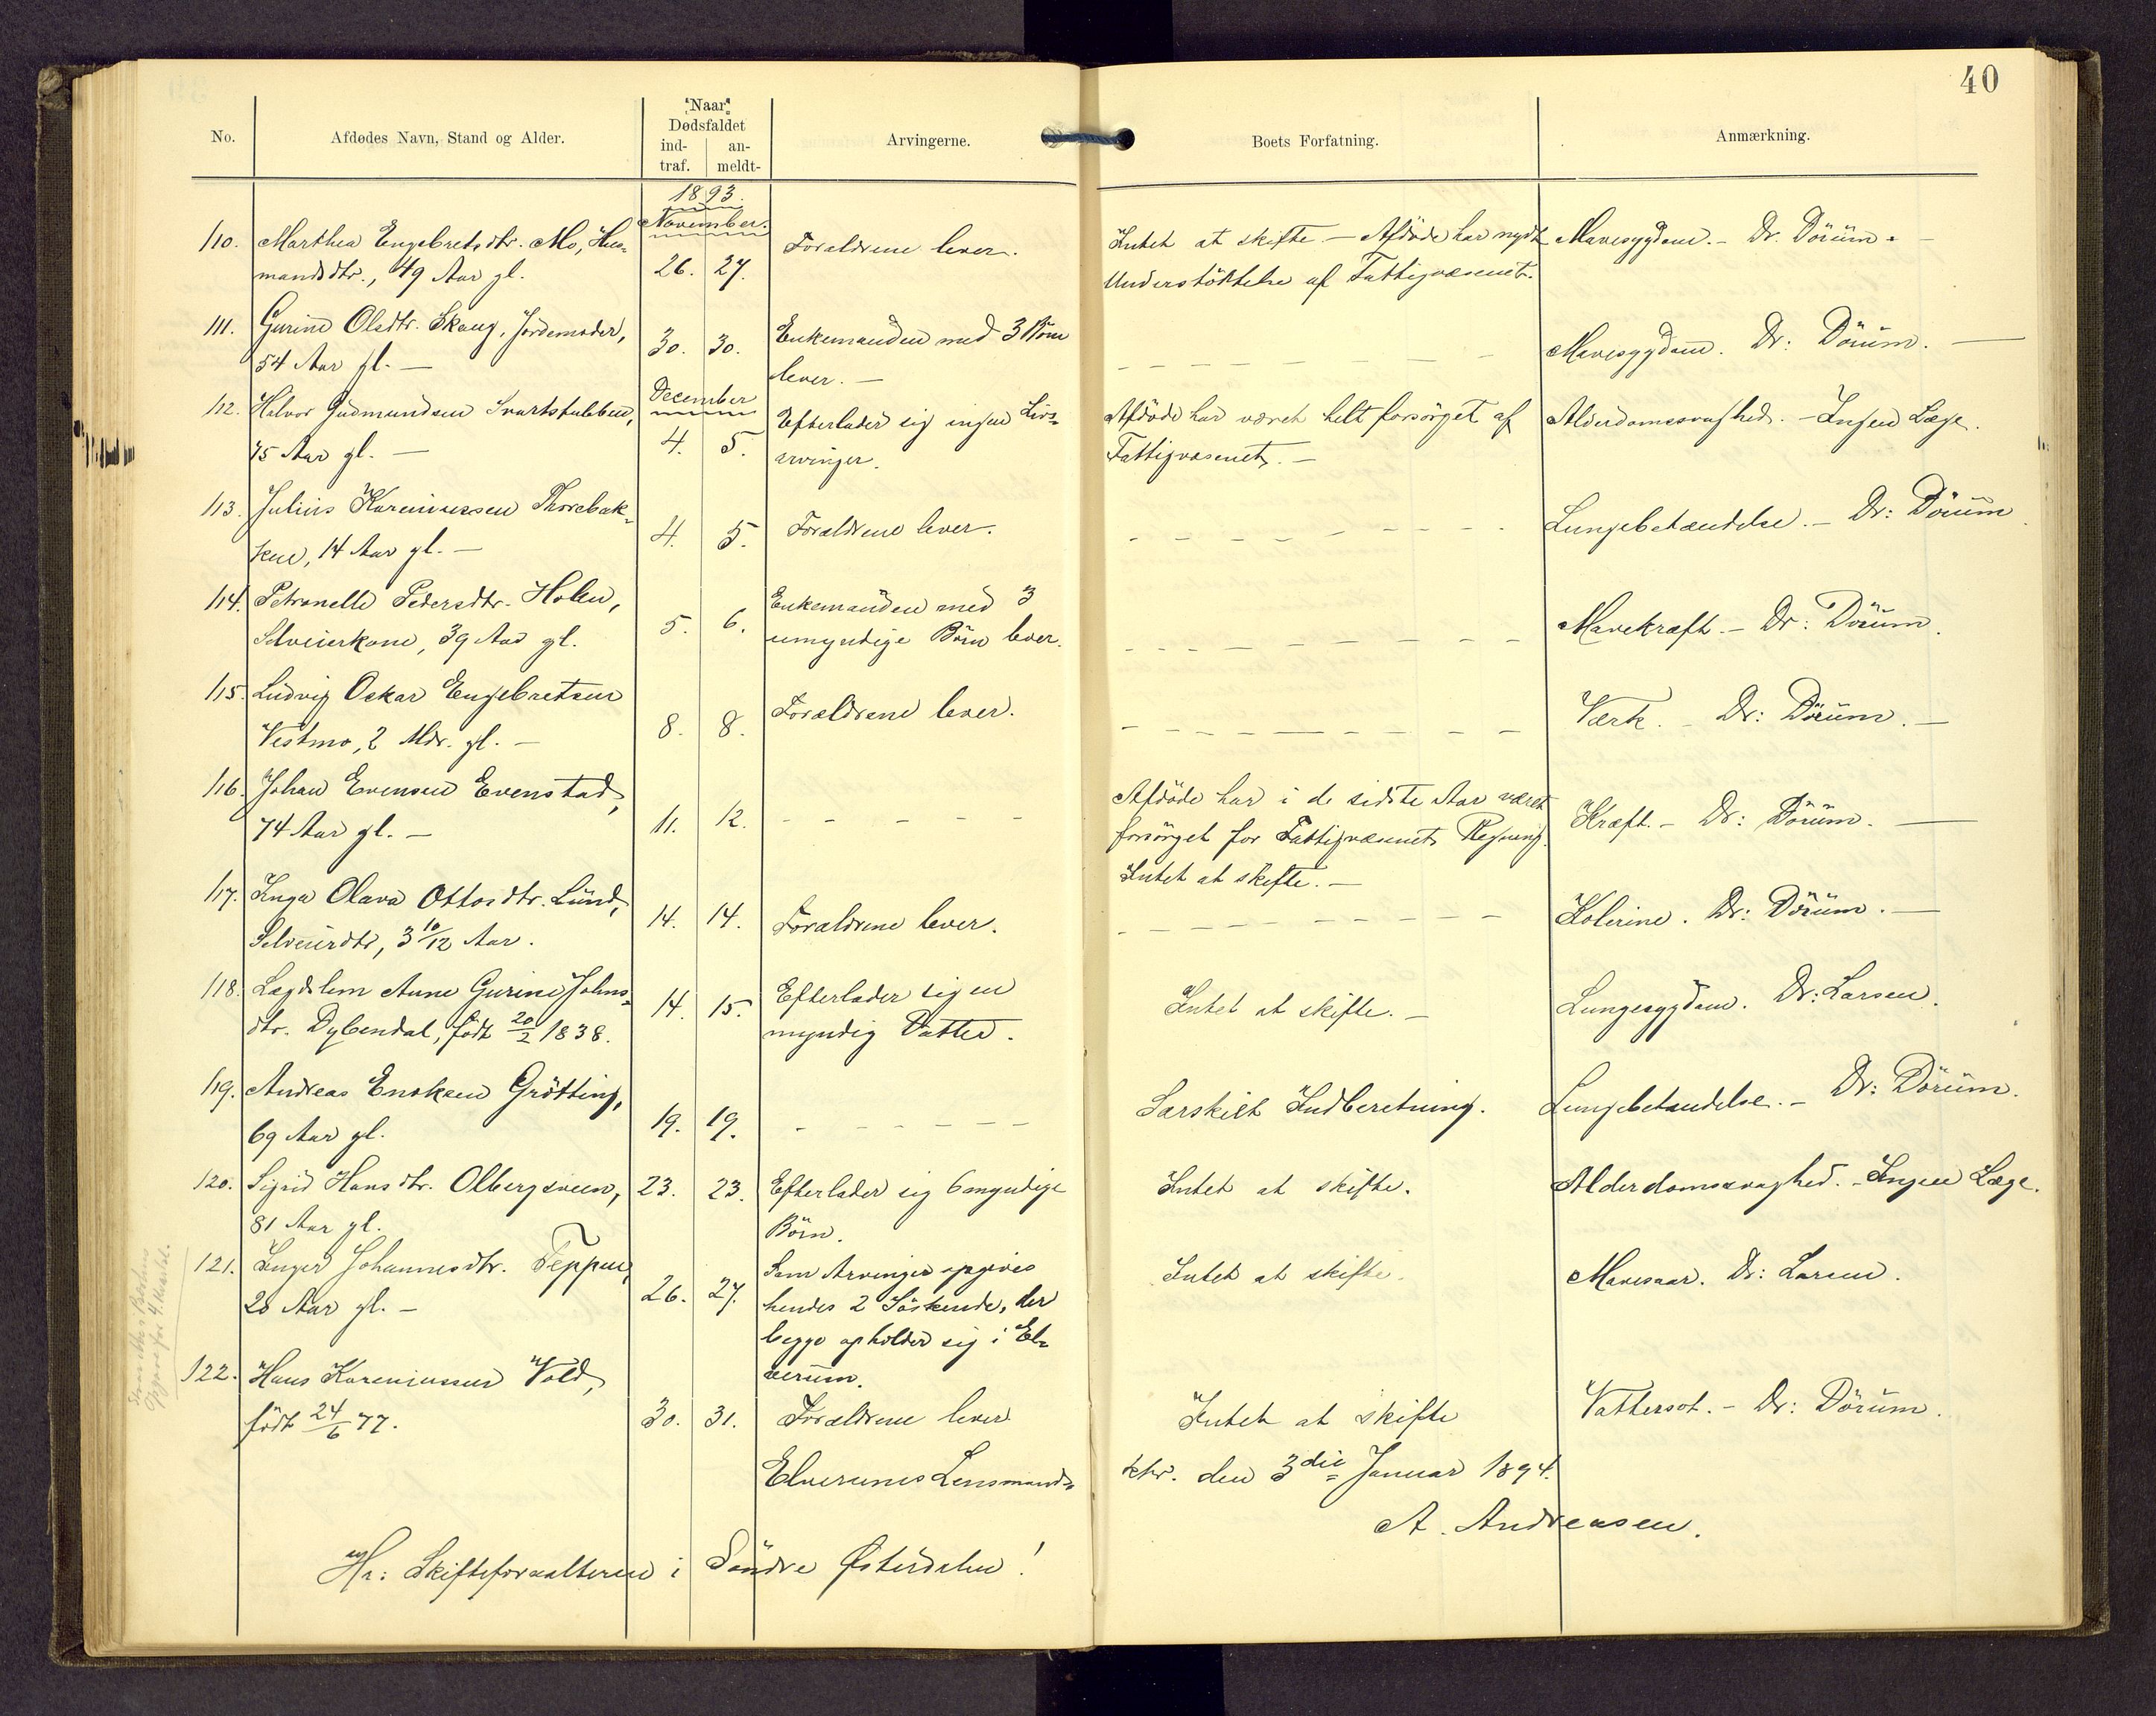 40
No.
Afdødes Navn, Stand og Alder.
Naar
Dødsfaldet
ind-
traf.
an-
meldt-
Arvingerne.
Boets Forfatning.
Anmærkning.
1893.
November.
110. Marthea Engebretsdtr. Mo, Hus- 26. 27. Forældrene lever. Intet at skifte. — Afdöde har nydt Mavesygdom. — Dr. Dörüm. —
mandsdtr., 49 Aar gl. Understöttelse af Fattigvæsenet.
111. Gurine Olsdtr. Skaug, Jordemoder, 30. 30. Enkemanden med 3 Börn — — — Mavesygdom. Dr: Dörüm. —
54 Aar gl. — lever. —
December
112. Halvor Gudmundsen Svartstubben, 4. 5. Efterlader sig ingen Livs- Afdöde har været helt forsörget af Alderdomssvaghed. — Ingen Læge.
75 Aar gl. — arvinger. Fattigvæsenet. —
113. Julius Kareniussen Thorebak- 4. 5. Forældrene lever. — — — Lungebetændelse. — Dr: Dörüm
ken, 14 Aar gl. —
114. Petronelle Pedersdtr. Holen, 5. 6. Enkemanden med 3 — — — Mavekræft. — Dr: Dörüm.
Selveierkone, 39 Aar gl. umyndige Börn lever.
115. Ludvig Oskar Engebretsen 8. 8. Forældrene lever. — — — Værk. — Dr: Dörüm. —
Vestmo, 2 Mdr. gl. —
116. Johan Evensen Evenstad, 11. 12. — — — Afdöde har i de sidste Aar været Kræft. — Dr: Dörüm. —
74 Aar gl. — forsörget for Fattigvæsenets Regning.
Intet at skifte. —
117. Inga Olava Ottosdtr. Lünd, 14. 14. Forældrene lever. — — — Kolerine. Dr: Dörüm. —
Selveierdtr, 3 10/12 Aar.
118. Lægdslem Anne Gurine Johns- 14. 15. Efterlader sig en Intet at skifte. — Lungesygdom. Dr: Larsen.
dtr. Dybendal, födt 20/2 1838. myndig Datter.
119. Andreas Enoksen Grötting, 19. 19. — — — Særskilt Indberetning. Lungebetændelse. — Dr: Dörüm.
69 Aar gl.
120. Sigrid Hansdtr. Olbergsveen, 23. 23. Efterlader sig 6 myndige Intet at skifte. Alderdomssvaghed. — Ingen Læge.
81 Aar gl. Börn.
121. Inger Johannesdtr. Teppen, 26. 27. Som Arvinger opgives Intet at skifte. Mavesaar. Dr: Larsen.
28 Aar gl. — hendes 2 Söskende, der
begge opholder sig i El-
verum.
122. Hans Kareniussen Vold, 30. 31. Forældrene lever Intet at skifte Vattersot. — Dr: Dörüm.
födt 24/6 77.
Elverums Lensmands-
ktr. den 3die Januar 1894.
A. Andreasen.
Hr: Skifteforvalteren i Söndre Østerdalen!